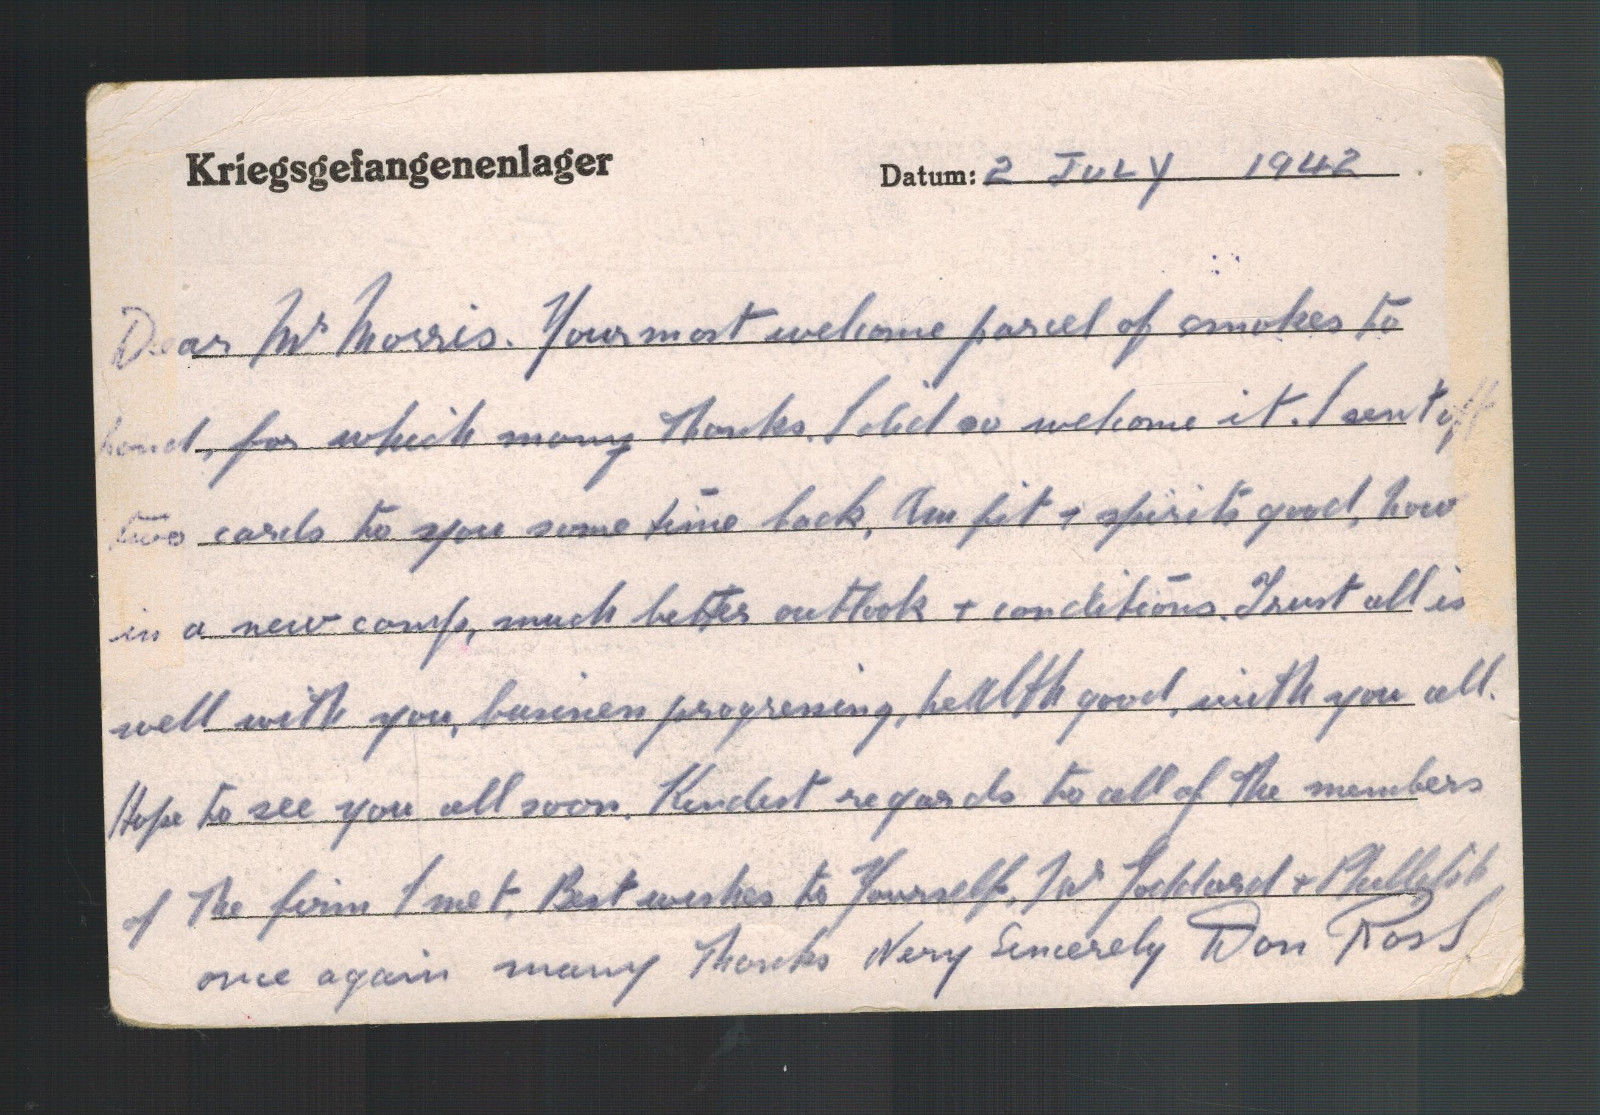 Kriegsgefangenenlager
Datum: 2 JULY 1942
Dear Mr Morris. Your most welcome parcel of smokes to
hand, for which many thanks. I did so welcome it. I sent off
two cards to you some time back, Am fit + spirits good, now
in a new camp, much better outlook + conditions. Trust all is
well with you, business progressing, health good, with you all.
Hope to see you all soon. Kindest regards to all of the members
of the firm I met, Best wishes to Yourself, Mr Goddard +
once again many thanks Very Sincerely Don Ross